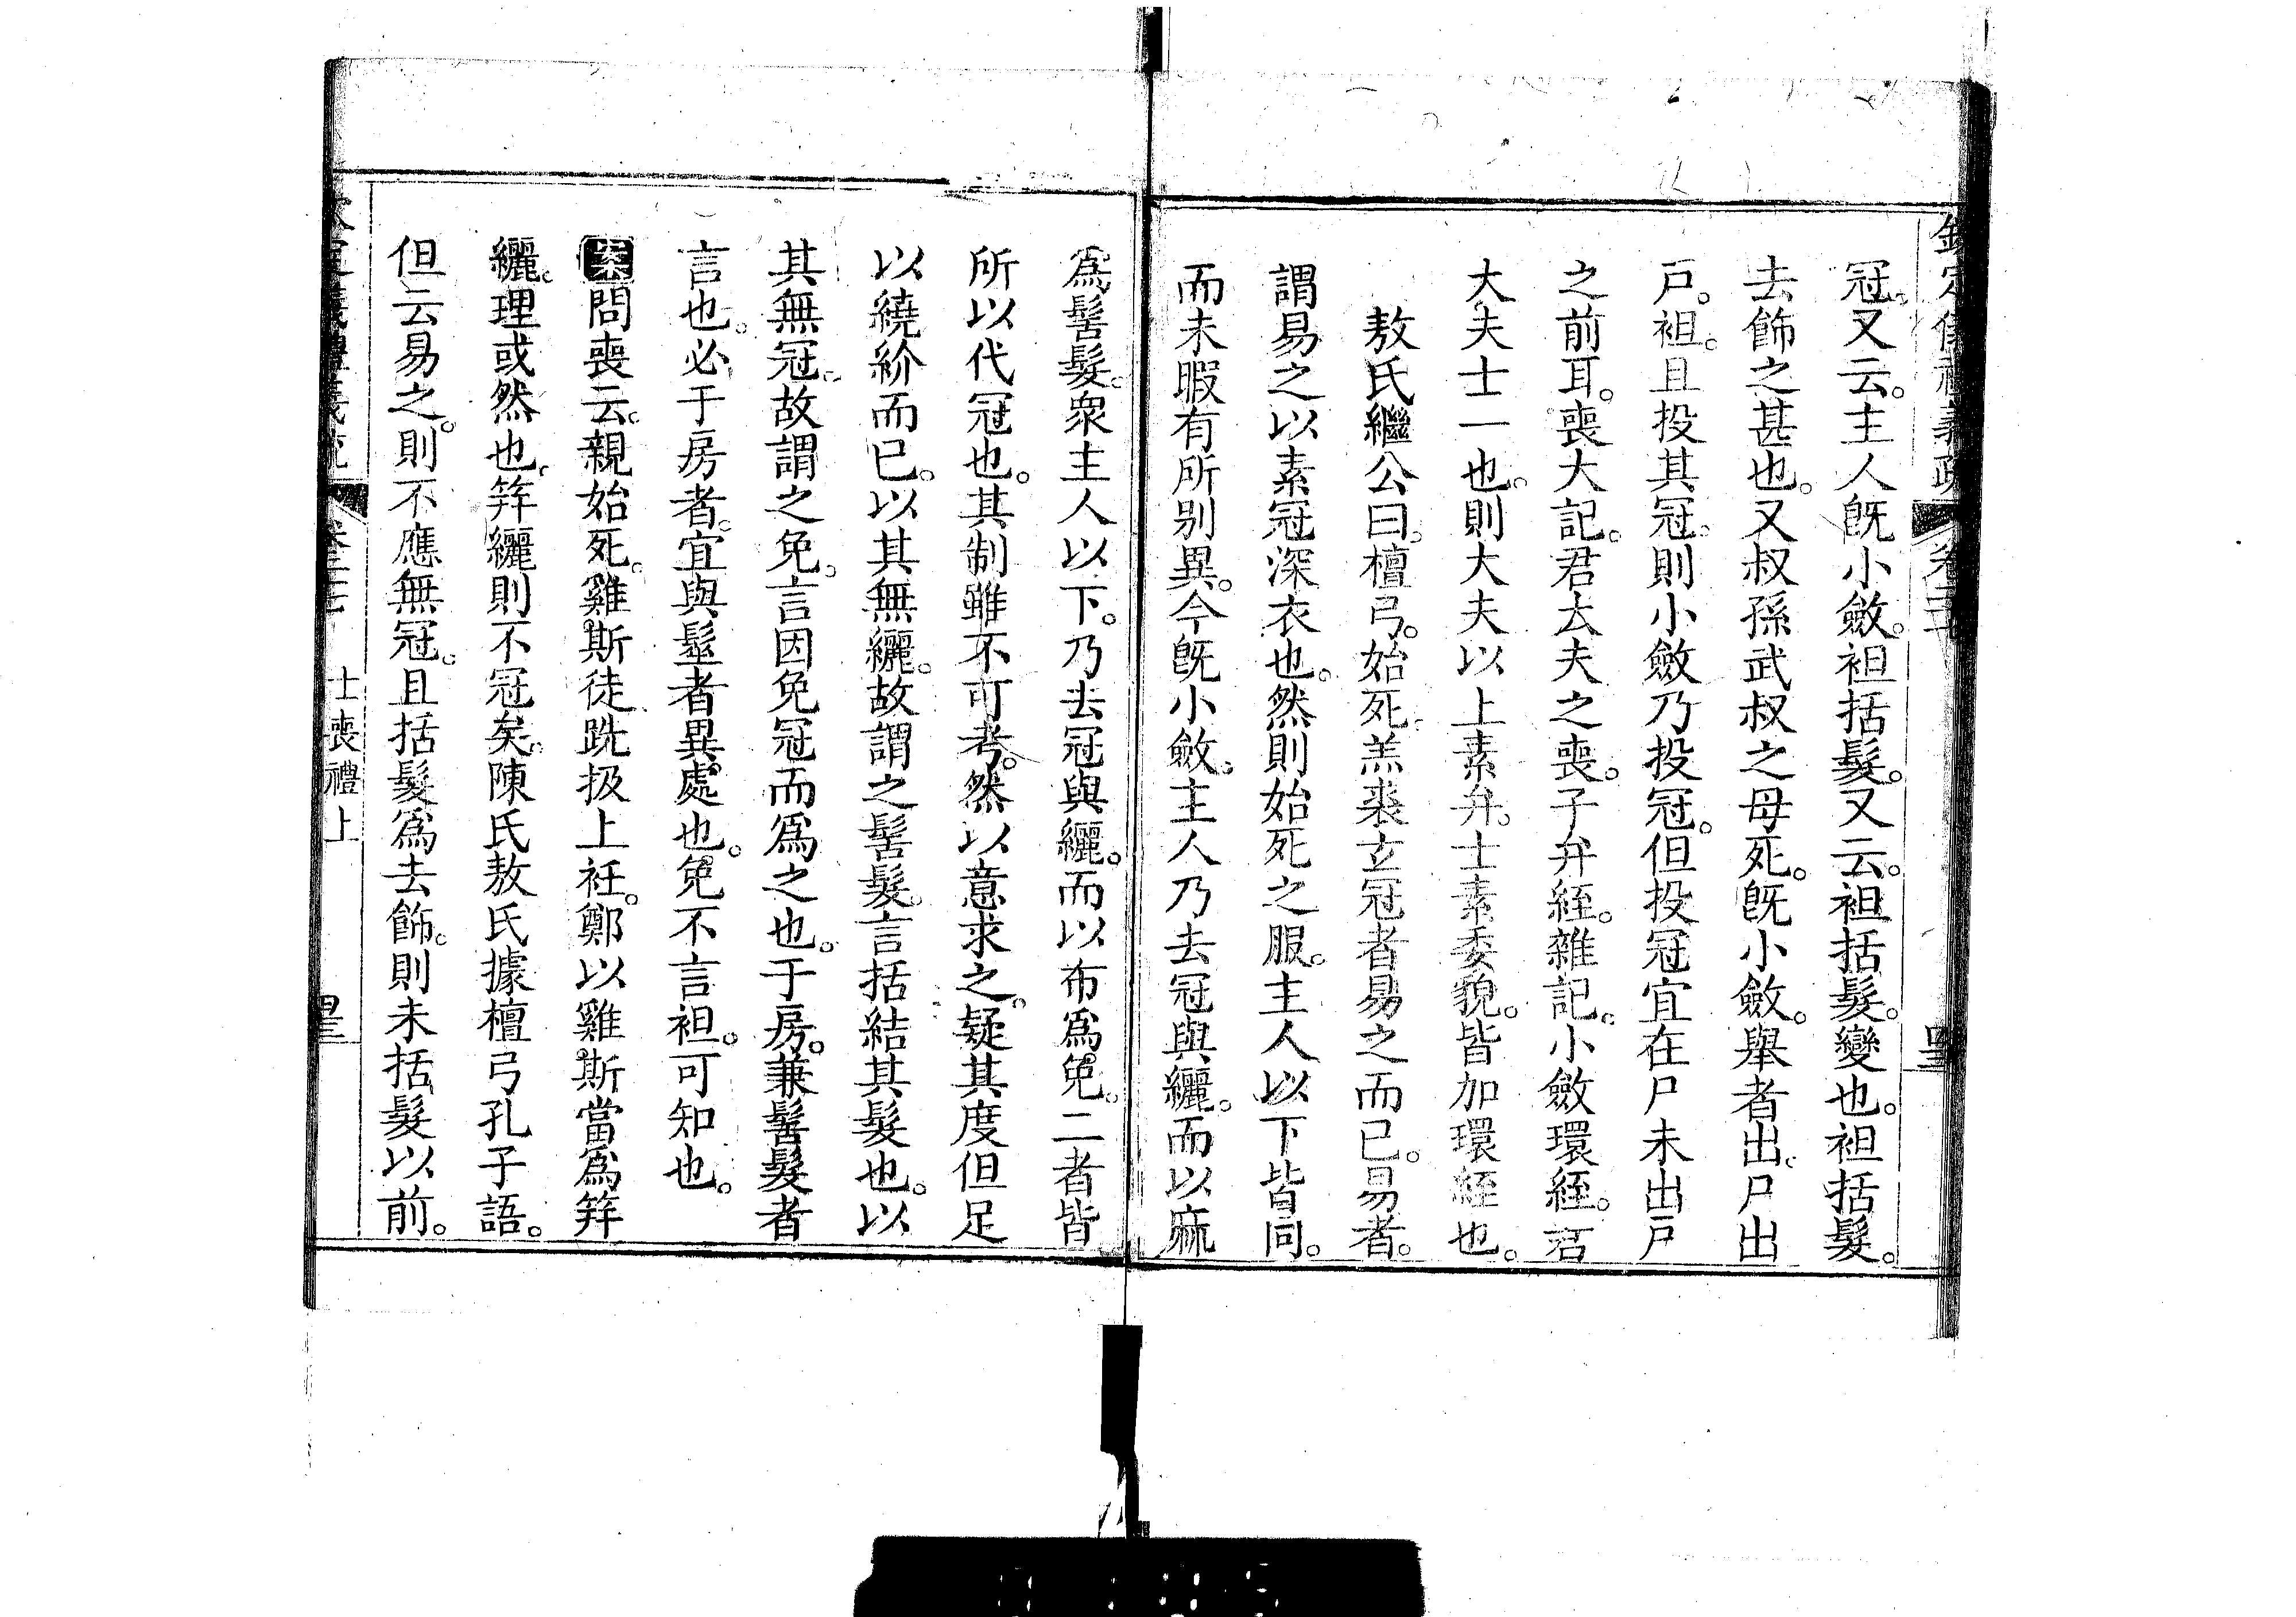 欽定儀禮義疏 卷二十七 四三
冠。又云。主人旣小斂。袒括髮。又云。袒括髮。變也。袒括髮。
去飾之甚也。又叔孫武叔之母死。旣小斂。舉者出。尸出
戶。袒。且投其冠。則小斂乃投冠。但投冠宜在尸未出戶
之前耳。喪大記。君大夫之喪。子弁絰。雜記。小斂環絰。君
大夫士一也。則大夫以上素弁。士素委貌。皆加環絰也。
敖氏繼公曰。檀弓。始死。羔裘玄冠者易之而已。易者。
謂易之以素冠深衣也。然則始死之服。主人以下皆同。
而未暇有所别異。今旣小斂。主人乃去冠與纚。而以麻
爲髻髮。衆主人以下。乃去冠與纚。而以布爲免。二者皆
所以代冠也。其制雖不可考。然以意求之。疑其度但足
以繞紒而已。以其無纚。故謂之髻髮。言括結其髮也。以
其無冠。故謂之免。言因免冠而爲之也。于房。兼髻髮者
言也。必于房者。宜與髽者異處也。免不言袒。可知也。
案問喪云。親始死。雞斯徒跣扱上衽。鄭以雞斯當爲笄
纚。理或然也。笄纚則不冠矣。陳氏敖氏據檀弓孔子語。
但云易之。則不應無冠。且括髮爲去飾。則未括髮以前。
欽定儀禮義疏 卷二十七 士喪禮上 四三